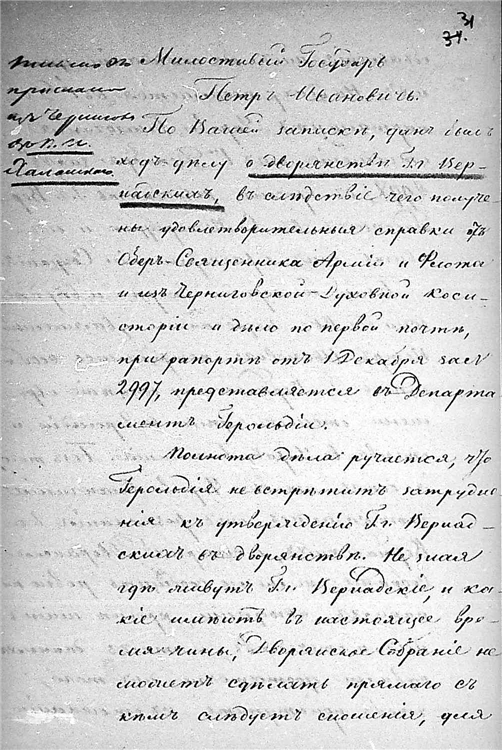 31
34.
письмо въ
прислан
изъ Чернигов
Милостивый Государь
Петръ Ивановичъ.
По Вашей запискѣ, данъ былъ
ходъ дѣлу о дворянствѣ Гг Вер-
надскихъ, въ слѣдствіе чего получе
ны удовлетворительныя справки отъ
Оберъ-Священника Арміи и Флота
и изъ Черниговской Духовной Конси
сторіи и дѣло по первой почтѣ,
при рапортѣ отъ 1 Декабря за №
2997, представляется въ Департа
ментъ Герольдіи.
Полнота дѣла ручается, что
Герольдія не встрѣтитъ затрудне
нія къ утвержденію Гг. Вернад-
скихъ въ дворянствѣ. Не зная
гдѣ живутъ Гг Вернадскіе, и ка
кіе имѣютъ въ настоящее вре-
мя чины, Дворянское Собраніе не
можетъ сдѣлать прямаго съ
кѣмъ слѣдуетъ сношенія, для